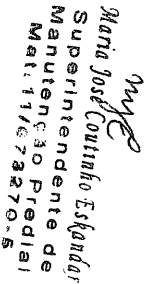 Maria José Coutinho Eskandar
Superintendente de
Manutenção Predial
Mat: 11/673270-5